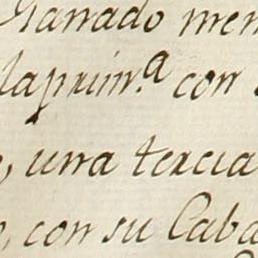 Granado men
laprim.ª con
, una tercia
, con su Caba